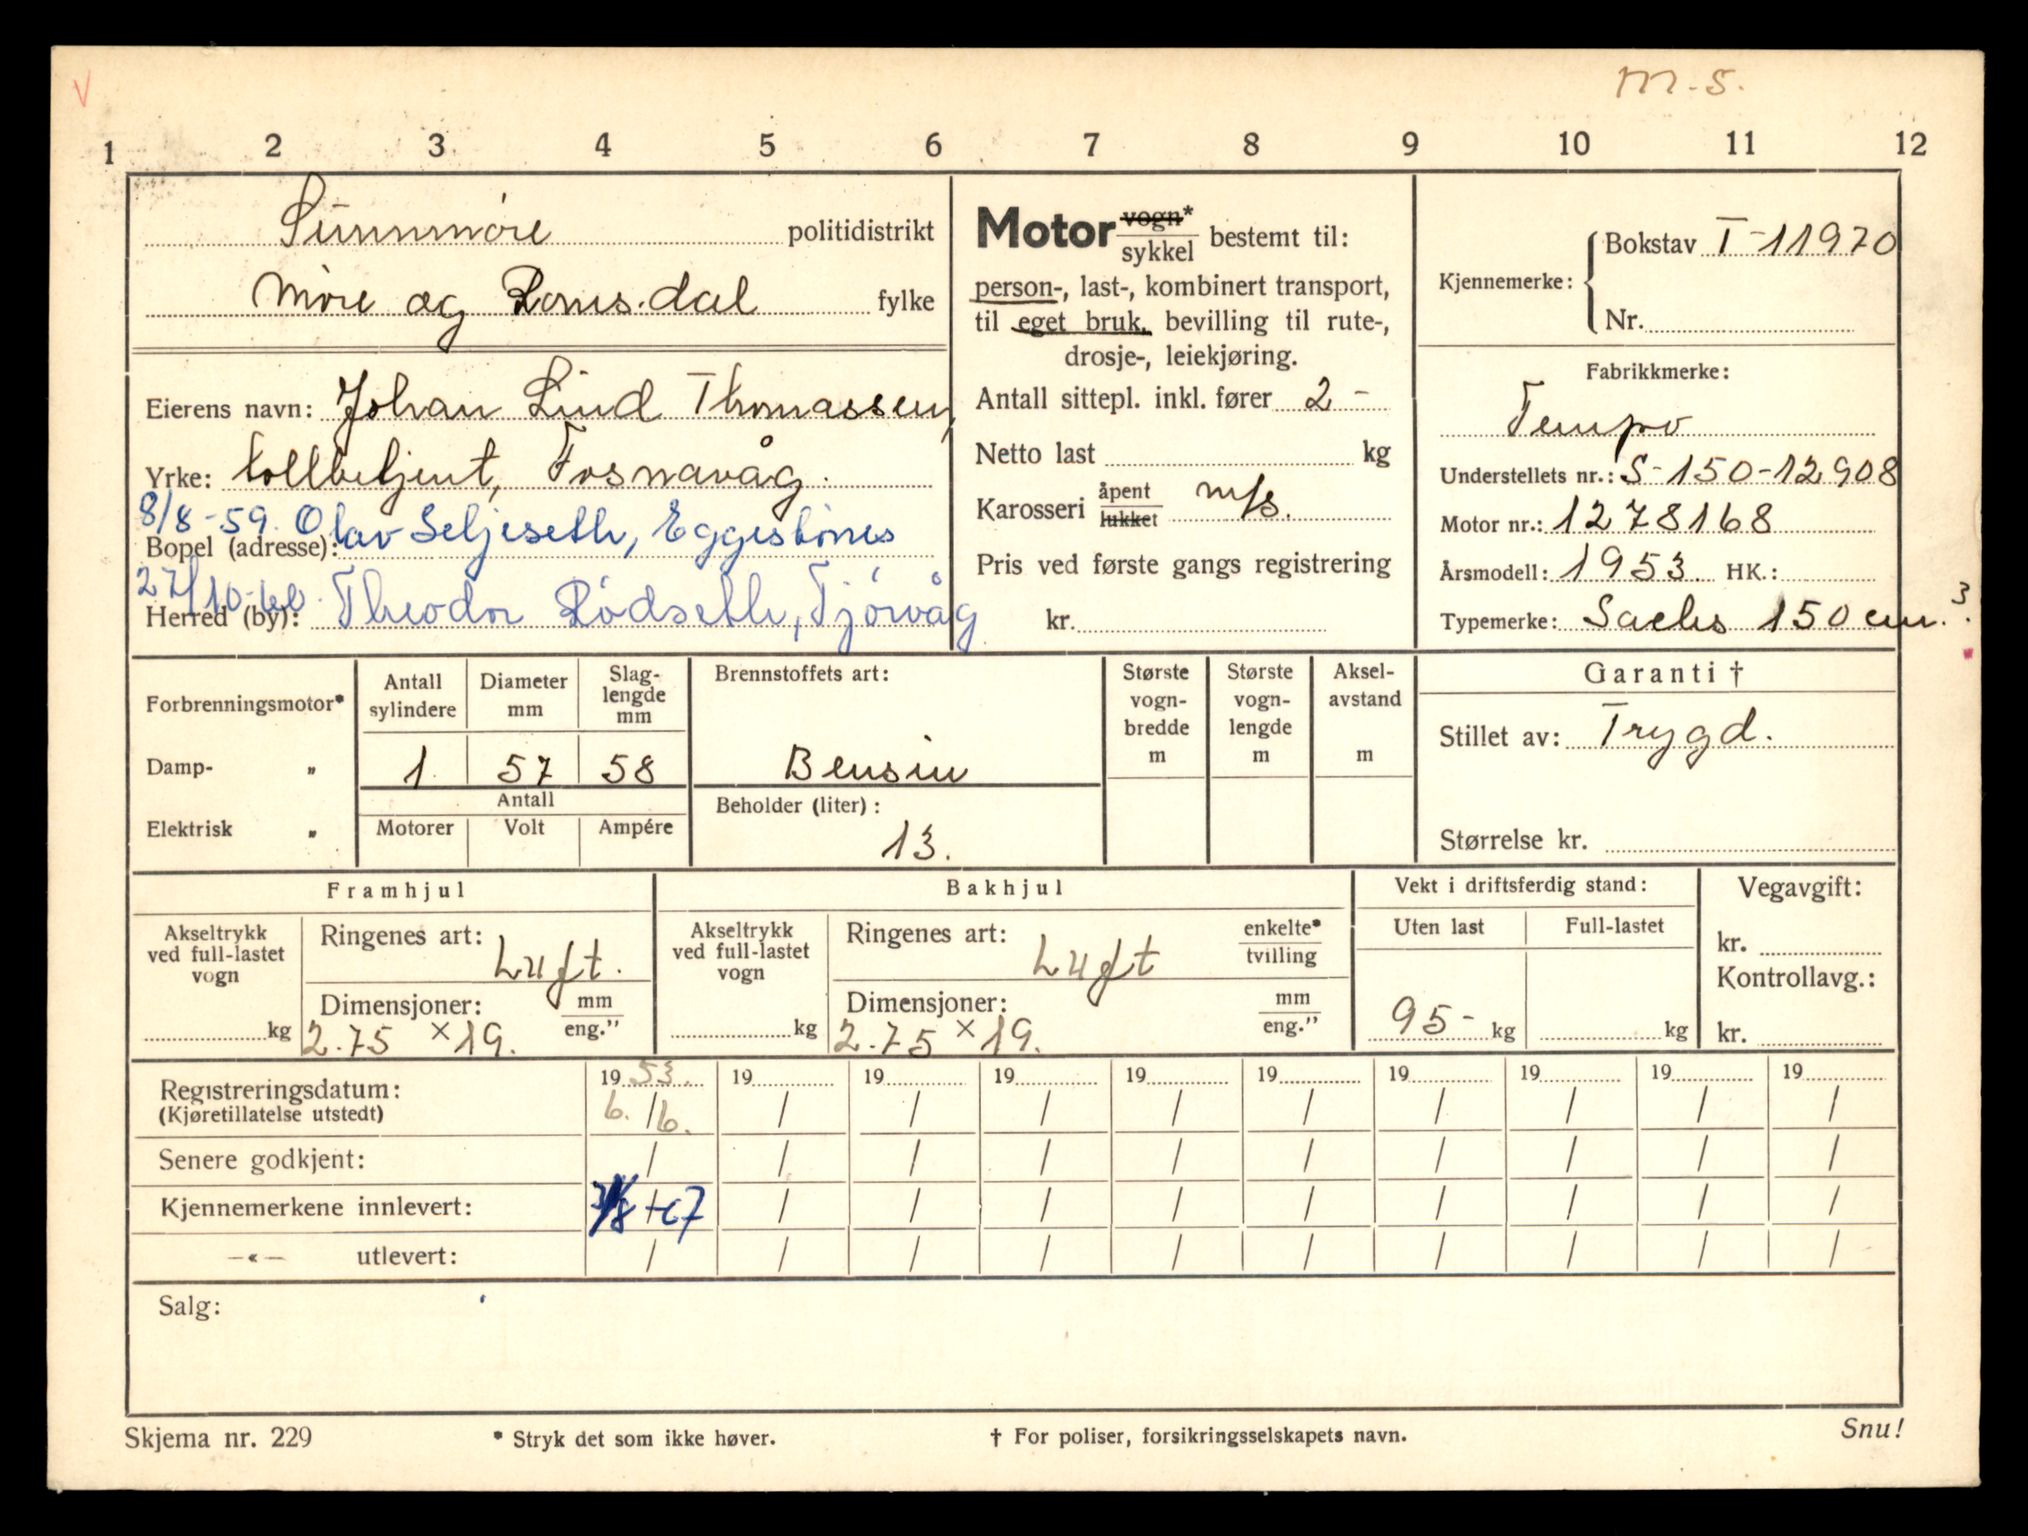 V
m-s.
1 2 3 4 5 6 7 8 9 10 11 12
Sunnmöre politidistrikt
Möre og Romsdal fylke
Eierens navn: Johan Lind Thomassen,
Yrke: tollbetjent, Fosnavåg.
8/8-59. Olav Seljeseth, Eggesbönes
Bopel (adresse):
27/10-60. Theodor Rödseth, Tjörvåg
Herred (by):
Motor vogn* / sykkel bestemt til:
person-, last-, kombinert transport,
til eget bruk, bevilling til rute-,
drosje-, leiekjøring.
Antall sittepl. inkl. fører 2 -
Netto last kg
Karosseri åpent / lukket m/s.
Pris ved første gangs registrering
kr.
Kjennemerke: Bokstav T-11970
Nr.
Fabrikkmerke:
Tempo
Understellets nr.: S-150-12908
Motor nr.: 1278168
Årsmodell: 1953 HK.:
Typemerke: Sachs 150 cm.³
Forbrenningsmotor*
Damp- „
Elektrisk „
Antall sylindere 1
Diameter mm 57
Slaglengde mm 58
Antall
Motorer Volt Ampére
Brennstoffets art:
Bensin
Beholder (liter):
13.
Største vognbredde m
Største vognlengde m
Akselavstand m
Garanti †
Stillet av: Trygd.
Størrelse kr.
Framhjul
Akseltrykk ved full-lastet vogn kg
Ringenes art: Luft.
Dimensjoner: mm / eng.”
2.75 × 19.
Bakhjul
Akseltrykk ved full-lastet vogn kg
Ringenes art: Luft enkelte* / tvilling
Dimensjoner: mm / eng.”
2.75 × 19.
Vekt i driftsferdig stand:
Uten last Full-lastet
95- kg kg
Vegavgift:
kr.
Kontrollavg.:
kr.
Registreringsdatum: 1953. 19 19 19 19 19 19 19 19 19
(Kjøretillatelse utstedt) 6./6. / / / / / / / / /
Senere godkjent: / / / / / / / / / /
Kjennemerkene innlevert: / / / / / / / / /
—«— utlevert: / / / / / / / / / /
Salg:
Skjema nr. 229 * Stryk det som ikke høver. † For poliser, forsikringsselskapets navn. Snu!